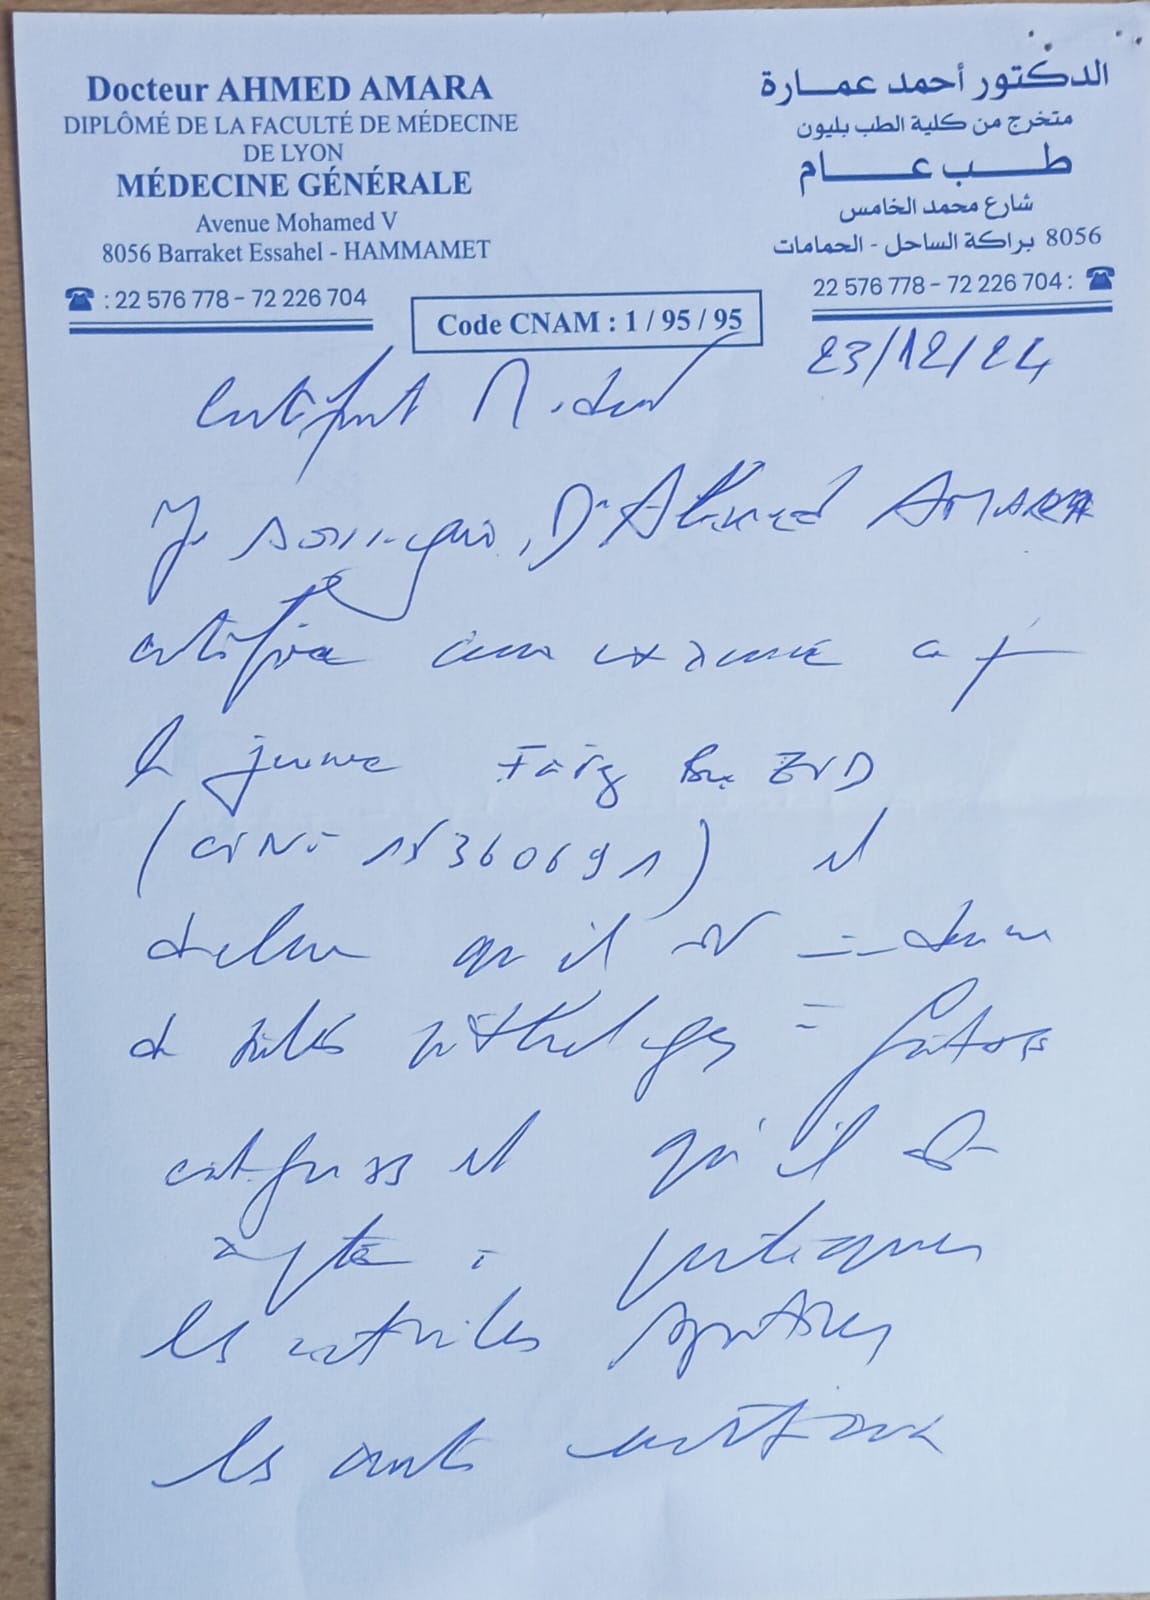 Docteur AHMED AMARA
DIPLÔMÉ DE LA FACULTÉ DE MÉDECINE
DE LYON
MÉDECINE GÉNÉRALE
Avenue Mohamed V
8056 Barraket Essahel - HAMMAMET
☎ : 22 576 778 - 72 226 704
الدكتور أحمد عمارة
متخرج من كلية الطب بليون
طب عام
شارع محمد الخامس
8056 براكة الساحل - الحمامات
22 576 778 - 72 226 704 : ☎
Code CNAM : 1 / 95 / 95
23/12/24
Certificat Médical
Je soussigné, Dr Ahmed AMARA
certifie avoir examiné
le jeune
et
déclare qu'il est indemne
de toutes pathologies
et qu'il est
apte à pratiquer
les activités sportives